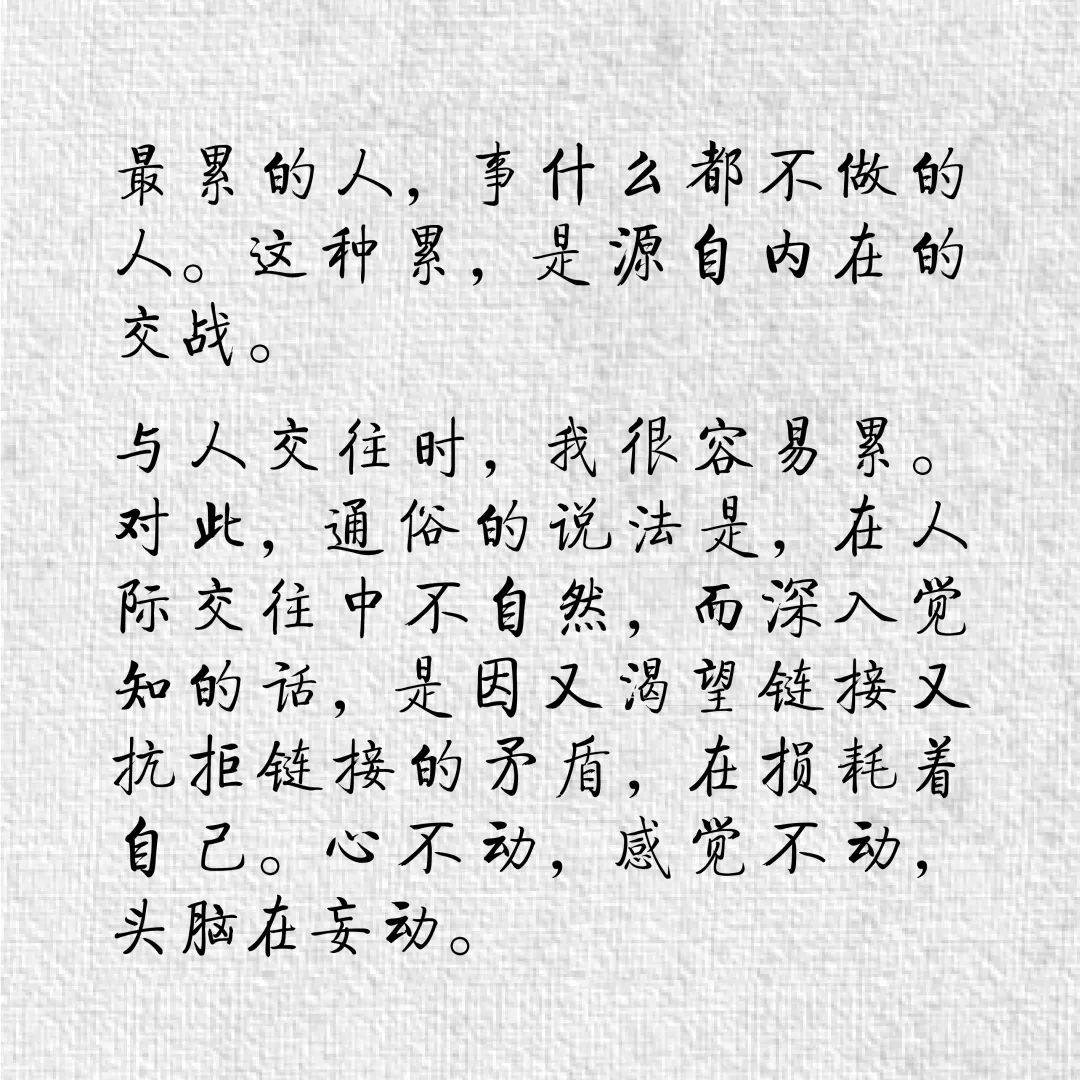 最累的人，事什么都不做的
人。这种累，是源自内在的
交战。
与人交往时，我很容易累。
对此，通俗的说法是，在人
际交往中不自然，而深入觉
知的话，是因又渴望链接又
抗拒链接的矛盾，在损耗着
自己。心不动，感觉不动，
头脑在妄动。